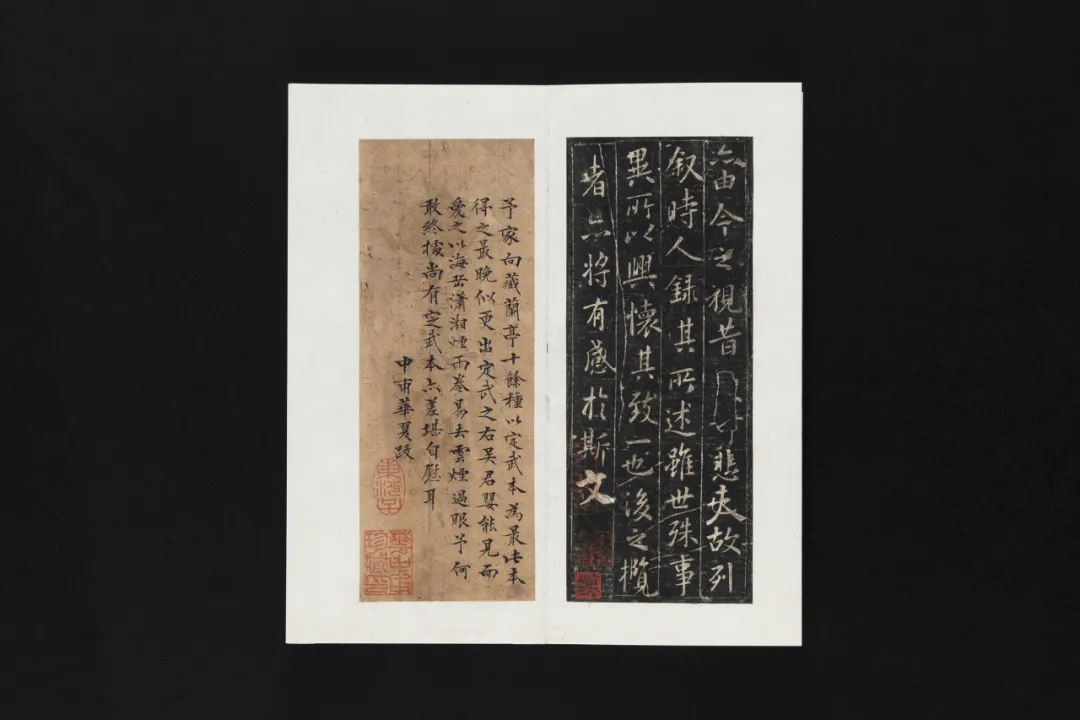 亦由今之視昔悲夫故列
叙時人録其所述雖世殊事
異所以興懷其致一也後之攬
者亦將有感於斯文
予家向藏蘭亭十餘種以定武本為最此本
得之最晚似更出定武之右吴君嬰能見而
愛之以海岳瀟湘煙雨卷易去雲煙過眼予何
敢終據尚有定武本亦差堪自慰耳
中甫華夏跋